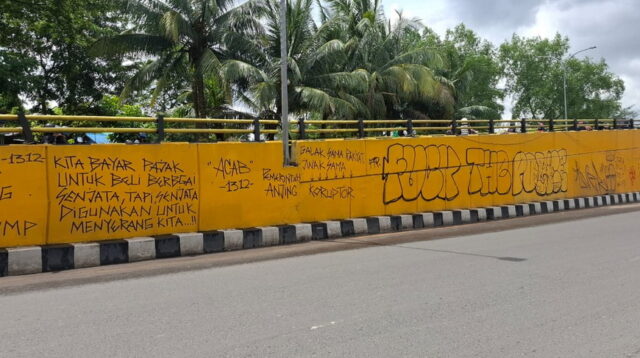 -1312
NG
MP
KITA BAYAR PAJAK
UNTUK BELI BERBGAI
SENJATA, TAPI SENJATA
DIGUNAKAN UNTUK
MENYERANG KITA...!!
"ACAB"
-1312-
PEMERINTAH
ANJING
GALAK SAMA RAKYAT
JINAK SAMA
KORUPTOR
FUCK THE POLICE